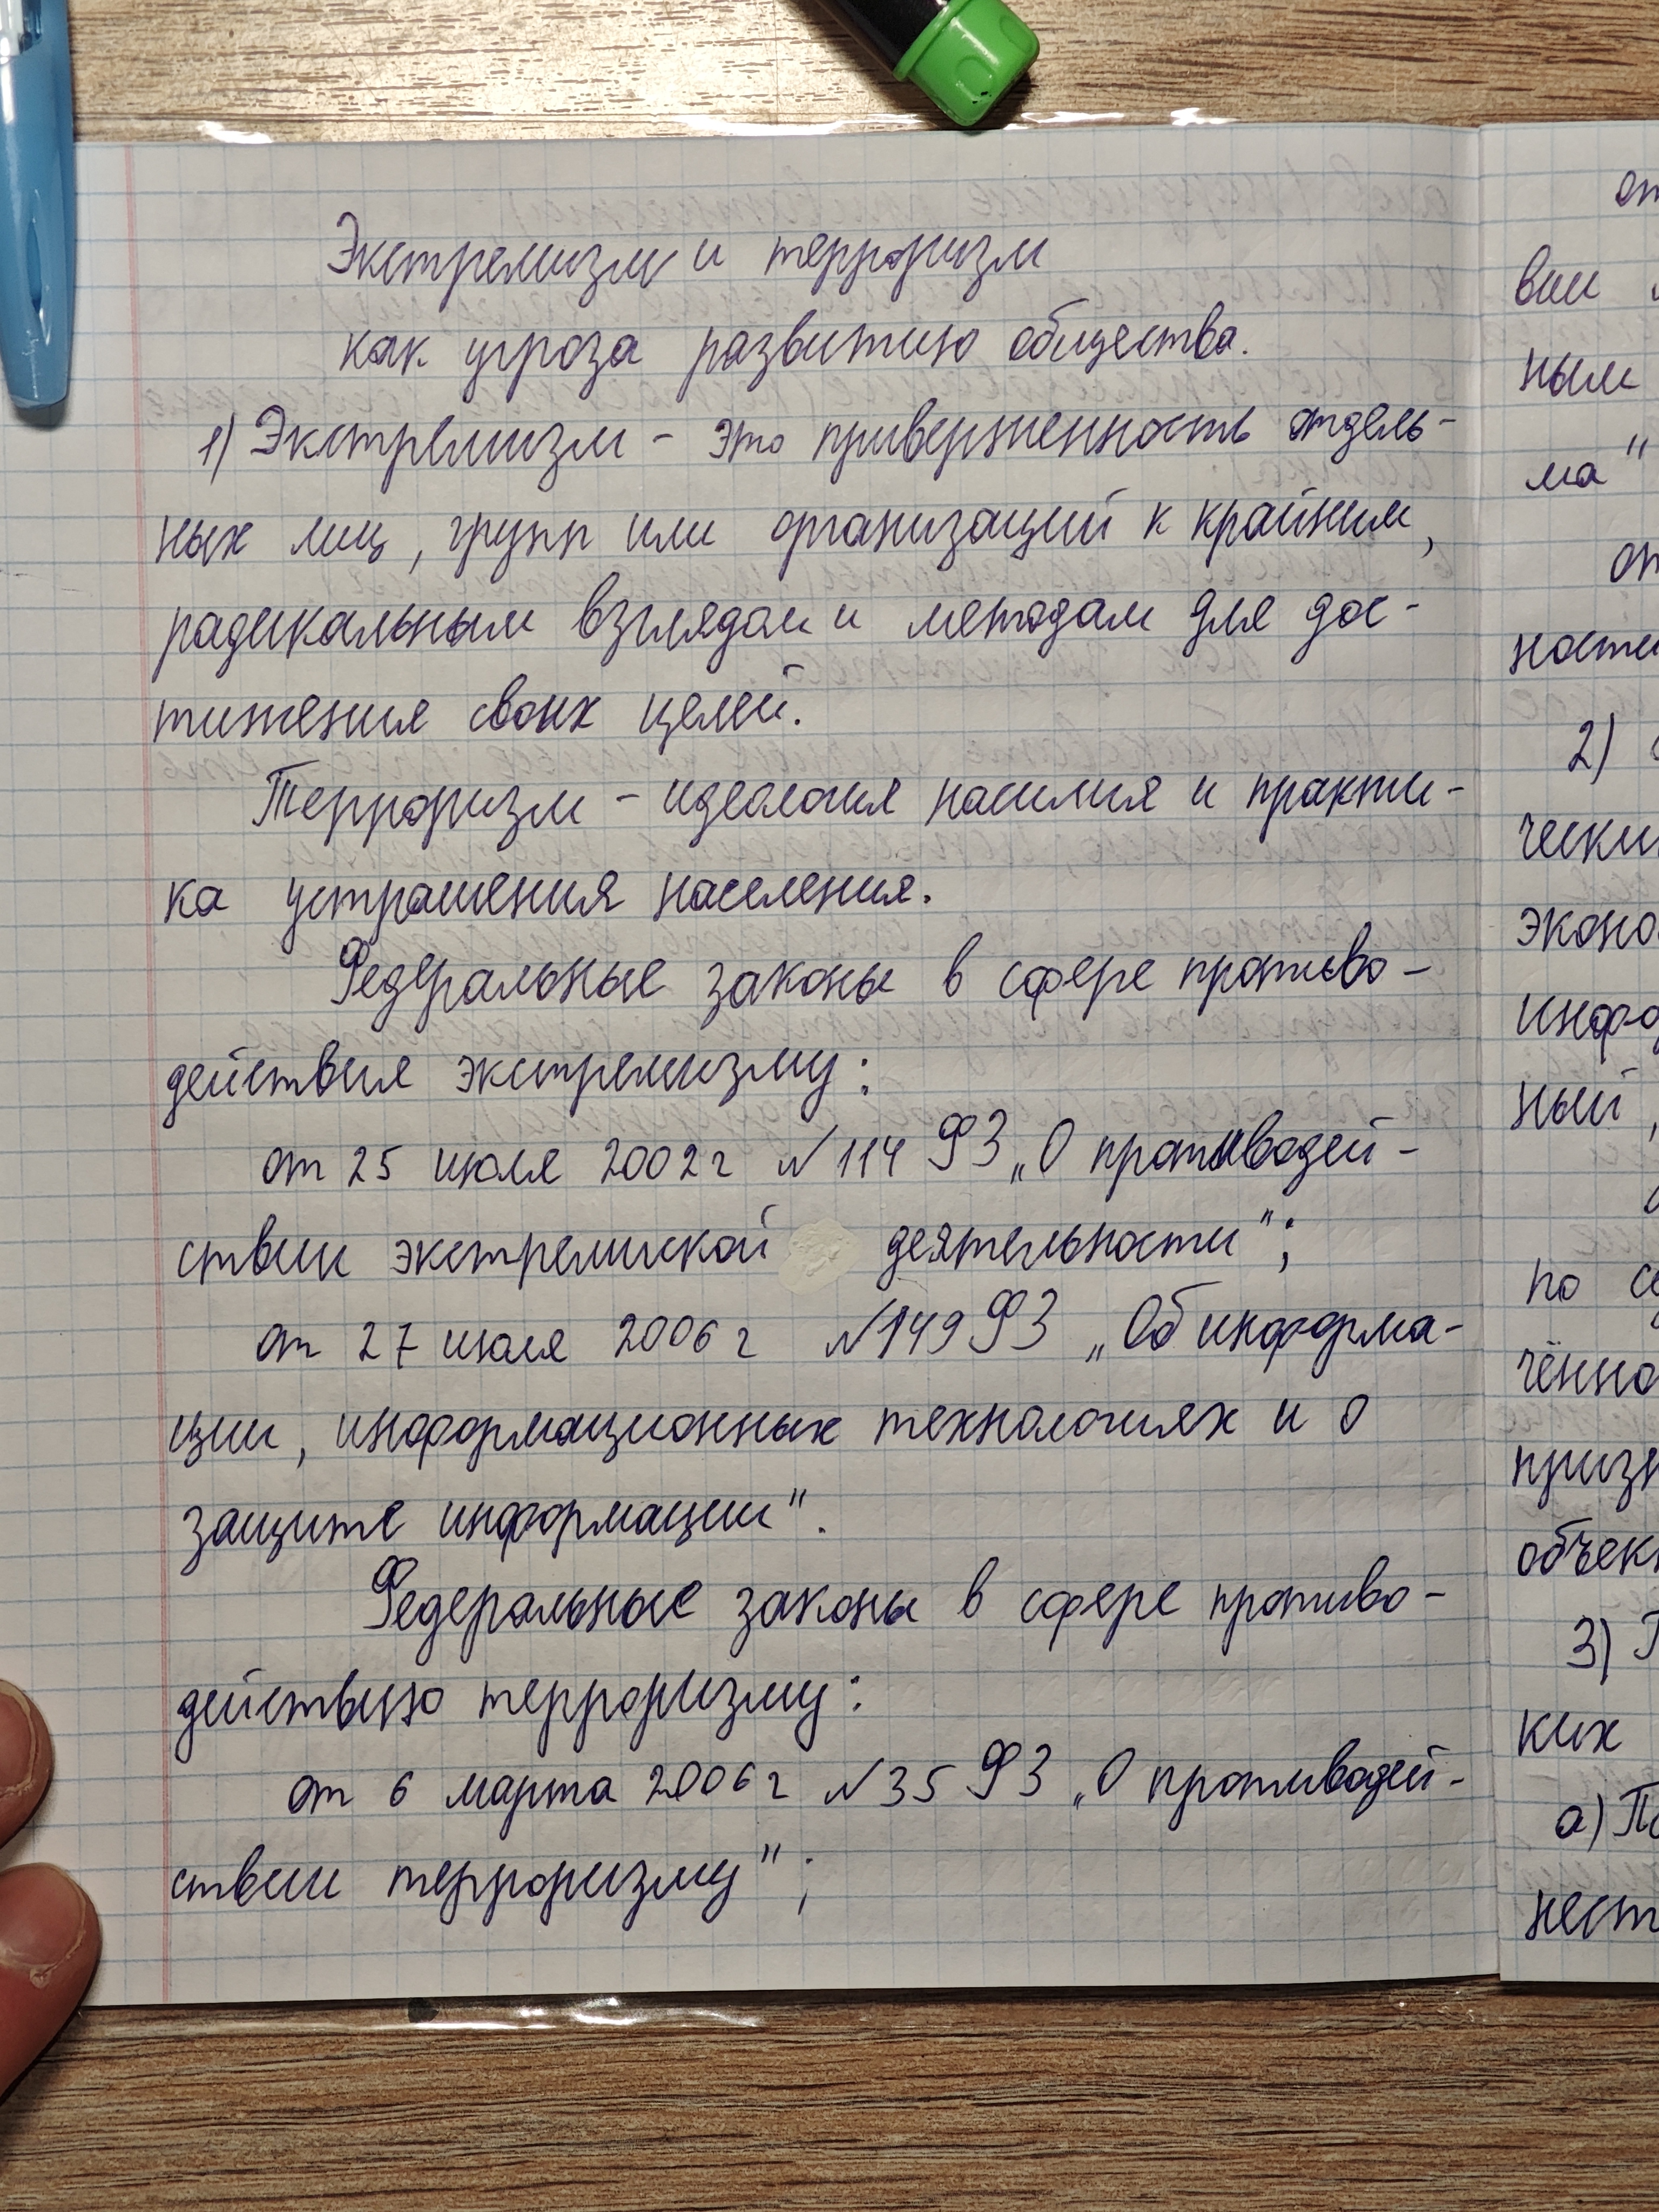 Экстремизм и терроризм
как угроза развитию общества.
1) Экстремизм - это приверженность отдель-
ных лиц, групп или организаций к крайним,
радикальным взглядам и методам для дос-
тижения своих целей.
Терроризм - идеология насилия и практи-
ка устрашения населения.
Федеральные законы в сфере противо-
действия экстремизму:
от 25 июля 2002 г №114 ФЗ „О противодей-
ствии экстремиской деятельности";
от 27 июля 2006 г №149 ФЗ „Об информа-
ции, информационных технологиях и о
защите информации".
Федеральные законы в сфере противо-
действию терроризму:
от 6 марта 2006 г №35 ФЗ „О противодей-
ствии терроризму";
от
вии
ным
ма"
от
ности
2)
чески
эконо
инфо
ный,
по
чённо
призн
объек
3)
ких
а) По
нест